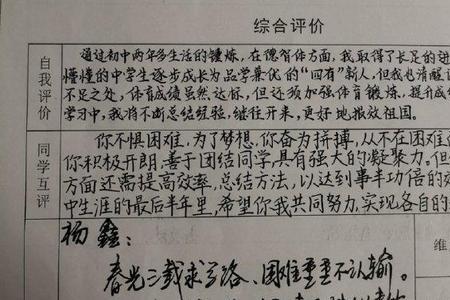 综合评价
自我评价
通过初中两年多生活的锤炼，在德智体方面，我取得了长足的进
懵懂的中学生逐步成长为品学兼优的“四有”新人，但我也清醒
不足之处，体育成绩虽然达标，但还须加强体育锻炼，提升成
学习中，我将不断总结经验，继往开来，更好地报效祖国。
同学互评
你不惧困难，为了梦想，你奋为拼搏，从不在困难
你积极开朗，善于团结同学，具有强大的凝聚力。但
方面还需提高效率，总结方法，以达到事半功倍的
中生涯的最后半年里，希望你我共同努力，实现各自的
杨鑫：
维
春光三载求学路、困难重重不认输。